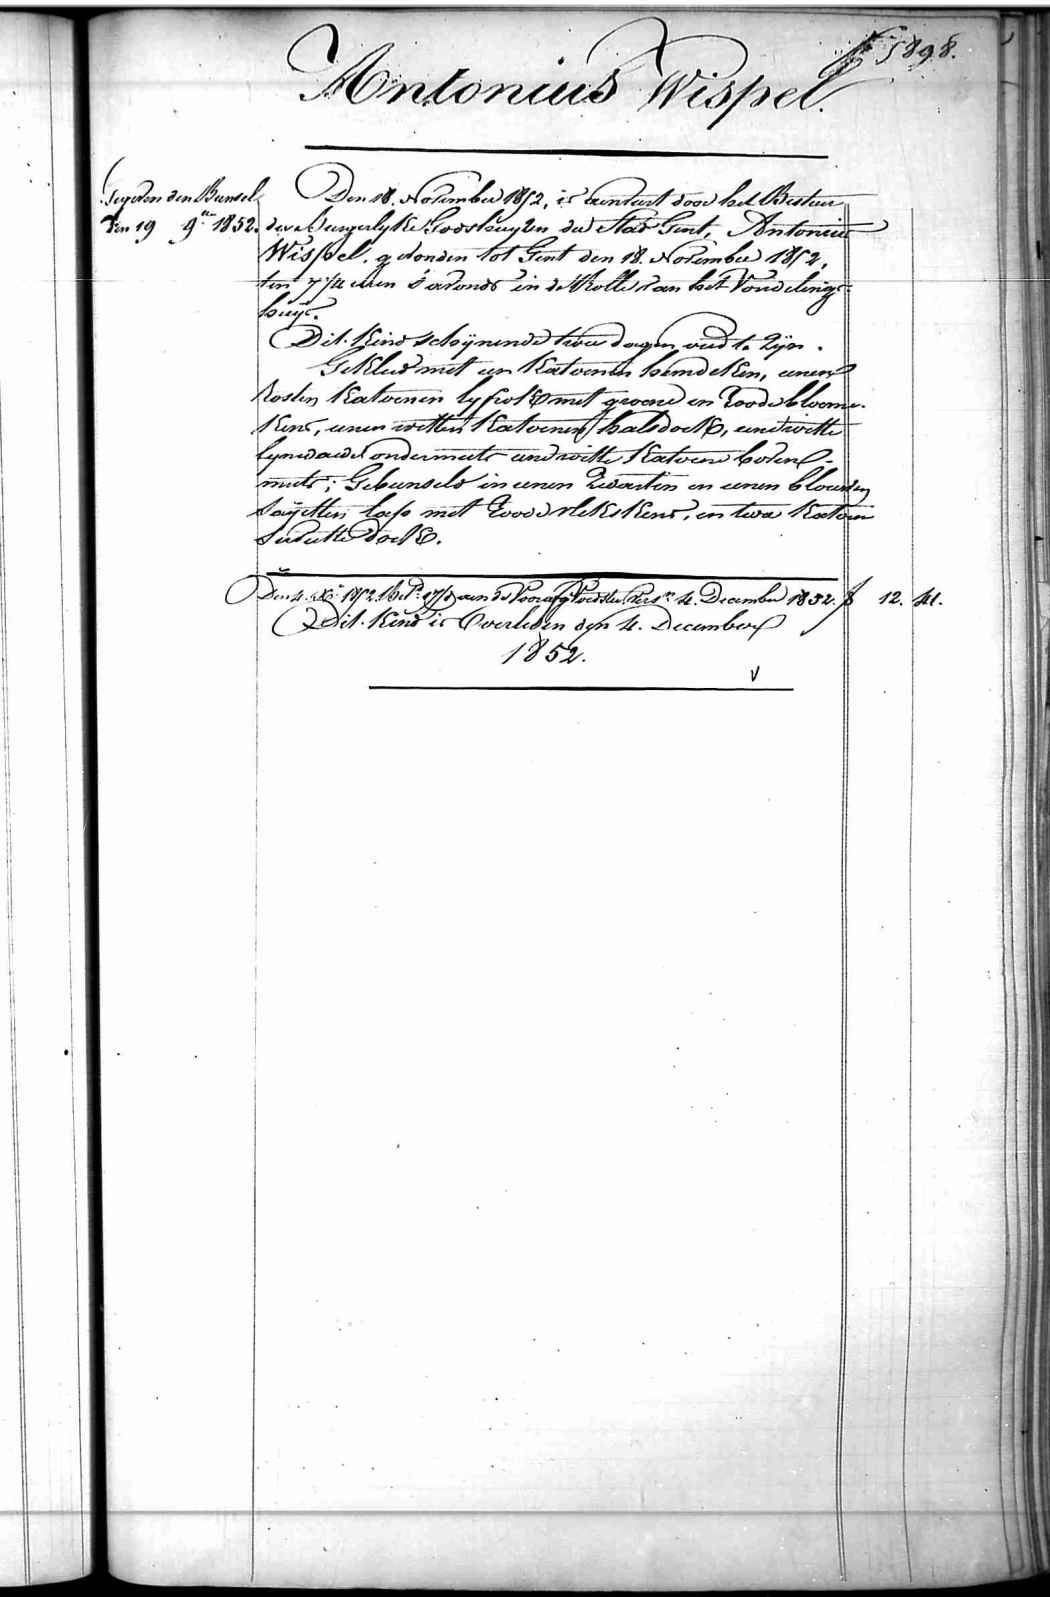 f° 1898.
Antonius Wispel.
Gegeven den Bunsel
Den 19 9ber 1852.
Den 18. November 1852, is aenveert door het Bestuer
der burgerlyke Godshuyzen der Stad Gent, Antonius
Wispel, gevonden tot Gent den 18. November 1852,
ten 7 1/4 uren s'avonds in de Rolle van het Vondeling-
huys.
Dit Kind schynende twee dagen oud te zyn.
Gekleed met een Katoenen hemdeken, eenen
rosten Katoenen lyfrok met groene en roode bloeme-
kens, eenen witten Katoenen halsdoek, eene witte
lynwaede ondermuts eene witte Katoene boven-
muts; Gebunseld in eenen zwarten en eenen blauwen
sayetten lap met roode vlekskens, en twee Katoene
servette doeken.
Den 4. Xbr 1852. Bet. 17 d. aen de Voorzorg Voedster vers. 4. December 1852. f 12. 41.
Dit Kind is Overleden den 4. December
1852.